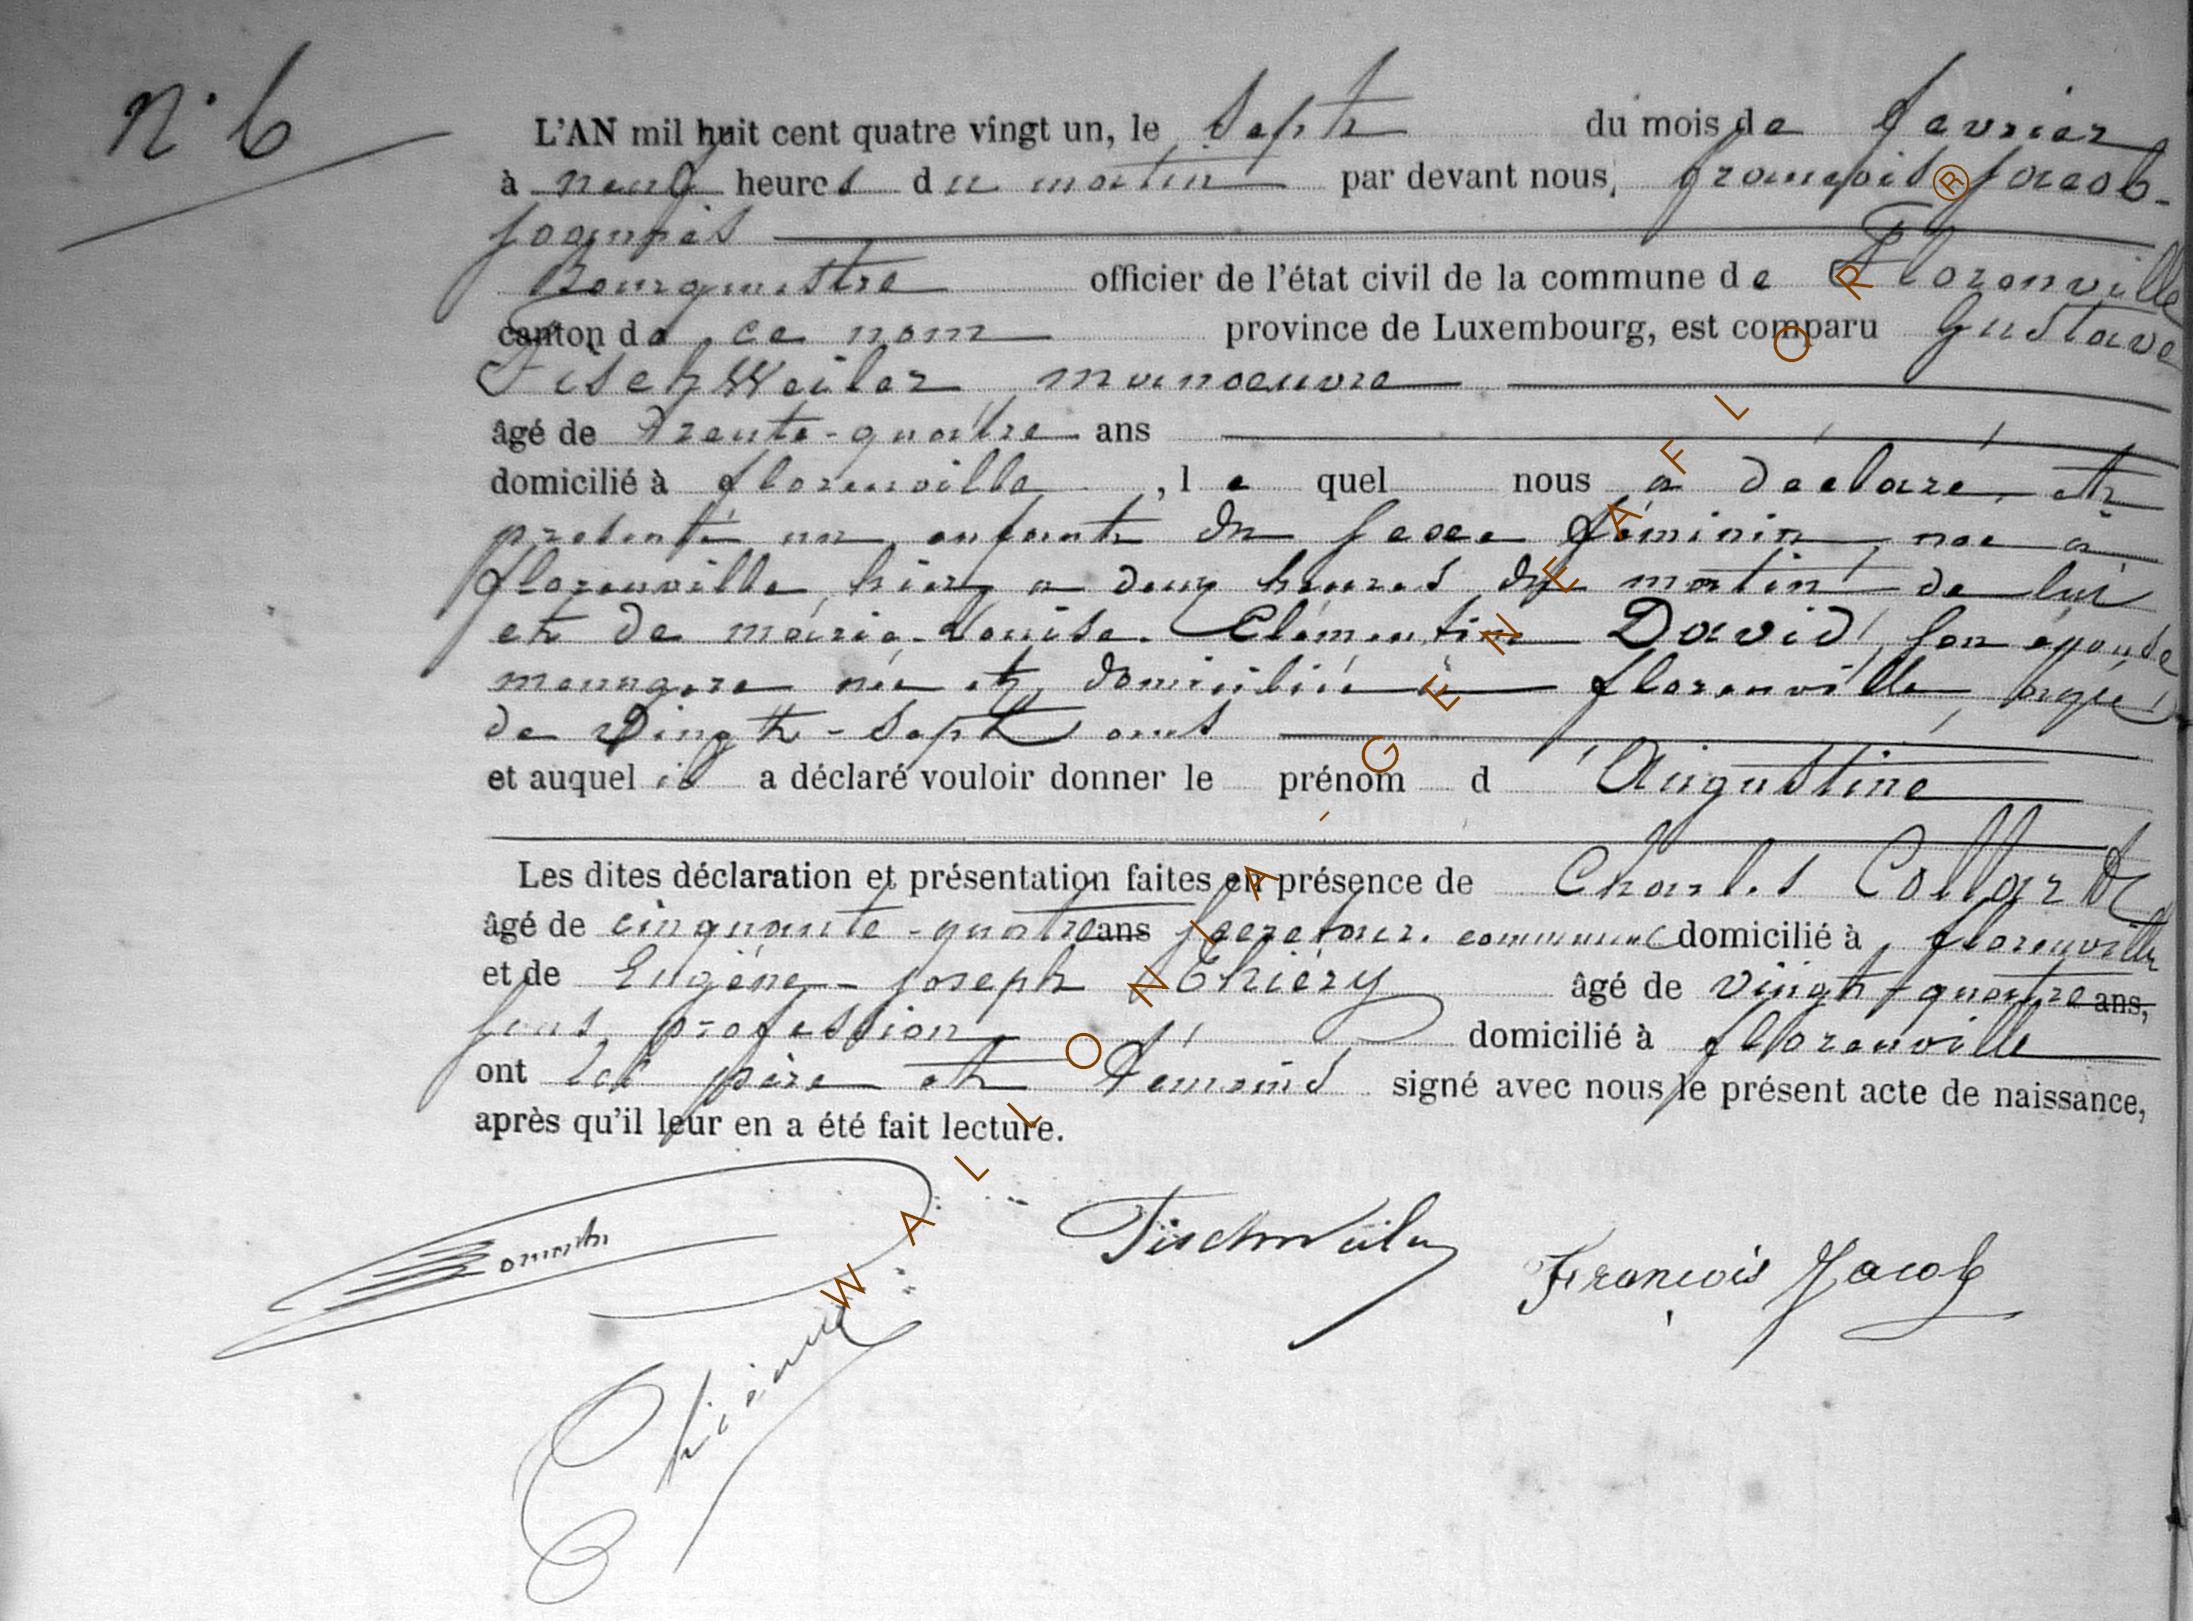 n° 6
L'AN mil huit cent quatre vingt un, le Sept du mois de fevrier
à neuf heures du matin par devant nous, françois Jacob-
Bourgmestre officier de l'état civil de la commune de Florenville
canton de ce nom province de Luxembourg, est comparu Gustave
FischWeiler manoeuvre
âgé de Trente-quatre ans
domicilié à florenville, le quel nous a déclaré et
presenté un enfant du sexe féminin née à
florenville, hier a deux heures du matin de lui
et de marie-Louise-Clémentine David, son épouse
menagere née et domiciliée à florenville, agée
de vingt-sept ans
et auquel il a déclaré vouloir donner le prénom d'Augustine
Les dites déclaration et présentation faites en présence de Charles Collard
âgé de cinquante-quatre ans secretaire communal domicilié à florenville
et de Eugène-Joseph Thiéry âgé de vingt-quatre ans,
sans profession domicilié à florenville
ont les père et témoins signé avec nous le présent acte de naissance,
après qu'il leur en a été fait lecture.
FischWeiler
François Jacob
WALLONIA - GENEAFLOR®